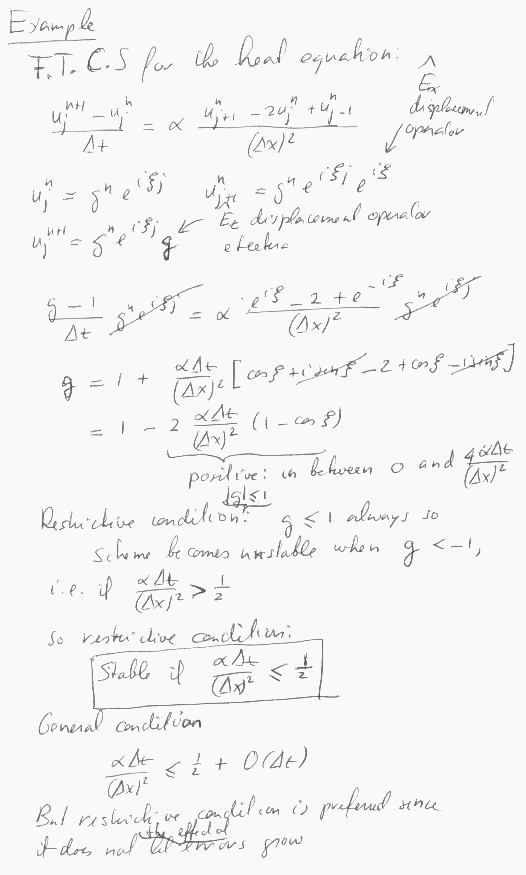 Example
F.T.C.S for the heat equation:
(u_j^{n+1} - u_j^n)/Δt = α (u_{j+1}^n - 2u_j^n + u_{j-1}^n)/(Δx)²
^
E_x
displacement
operator
u_j^n = g^n e^{iξj}   u_{j+1}^n = g^n e^{iξj} e^{iξ}
u_j^{n+1} = g^n e^{iξj} g ← E_t displacement operator
etcetera
(g - 1)/Δt g^n e^{iξj} = α (e^{iξ} - 2 + e^{-iξ})/(Δx)² g^n e^{iξj}
g = 1 + αΔt/(Δx)² [cos ξ + i sin ξ - 2 + cos ξ - i sin ξ]
= 1 - 2 αΔt/(Δx)² (1 - cos ξ)
positive: in between 0 and 4αΔt/(Δx)²
|g| ≤ 1
Restrictive condition: g ≤ 1 always so
scheme becomes unstable when g < -1,
i.e. if αΔt/(Δx)² > 1/2
so restrictive condition:
Stable if αΔt/(Δx)² ≤ 1/2
General condition
αΔt/(Δx)² ≤ 1/2 + O(Δt)
But restrictive condition is preferred since
it does not let the effect of errors grow